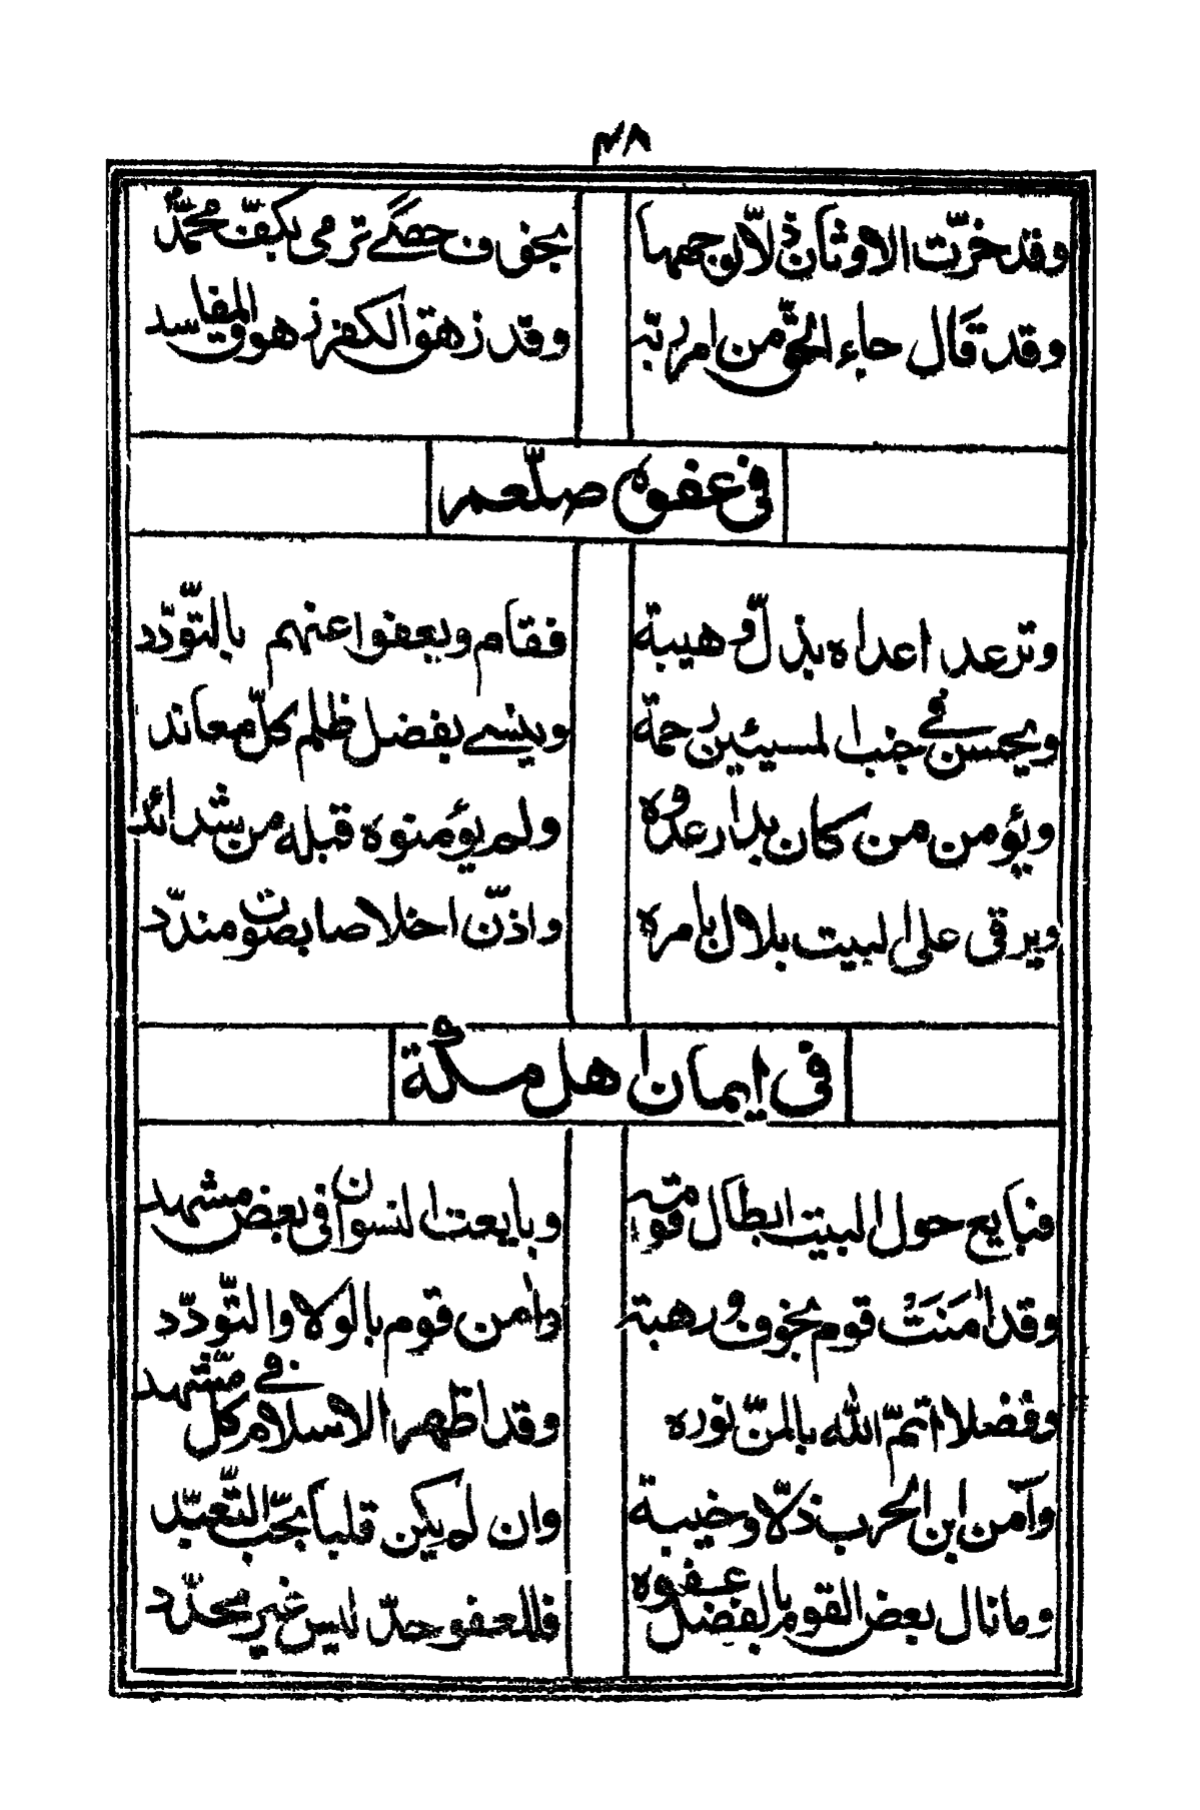 ٣٨
وقد خرّت الاوثان ذلّا لوجهها بخوف حصىً ترمى بكفّ محمّدٍ
وقد قال جاء الحقّ من امر ربّه وقد زهق الكفر زهوق المفاسد
فى عفوه صلّعم
وترعد اعداه بذلّ و هيبة فقام ويعفوا عنهم بالتّودّد
ويحسن فى جنب المسيئين رحمة وينسى بفضل ظلم كلّ معاند
ويؤمن من كان بدار عدوه ولم يؤمنوه قبله من شدائد
ويرقى على البيت بلال بامره واذّن اخلاصا بصوت مندّد
فى ايمان اهل مكّة
فبايع حول البيت ابطال قومه وبايعت النسوان فى بعض مشهد
وقد اٰمَنَتْ قوم بخوف و رهبة واٰمن قوم بالولا والتّودّد
وفضلا اتمّ الله بالمنّ نوره وقد اظهر الاسلام فى كل مشهد
وآمن ابن الحرب ذلّا وخيبة وان لم يكن قلبا بحّب التّعبّد
وما نال بعض القوم بالفضل عفوه فللعفو حدّ ليس غير محدّد